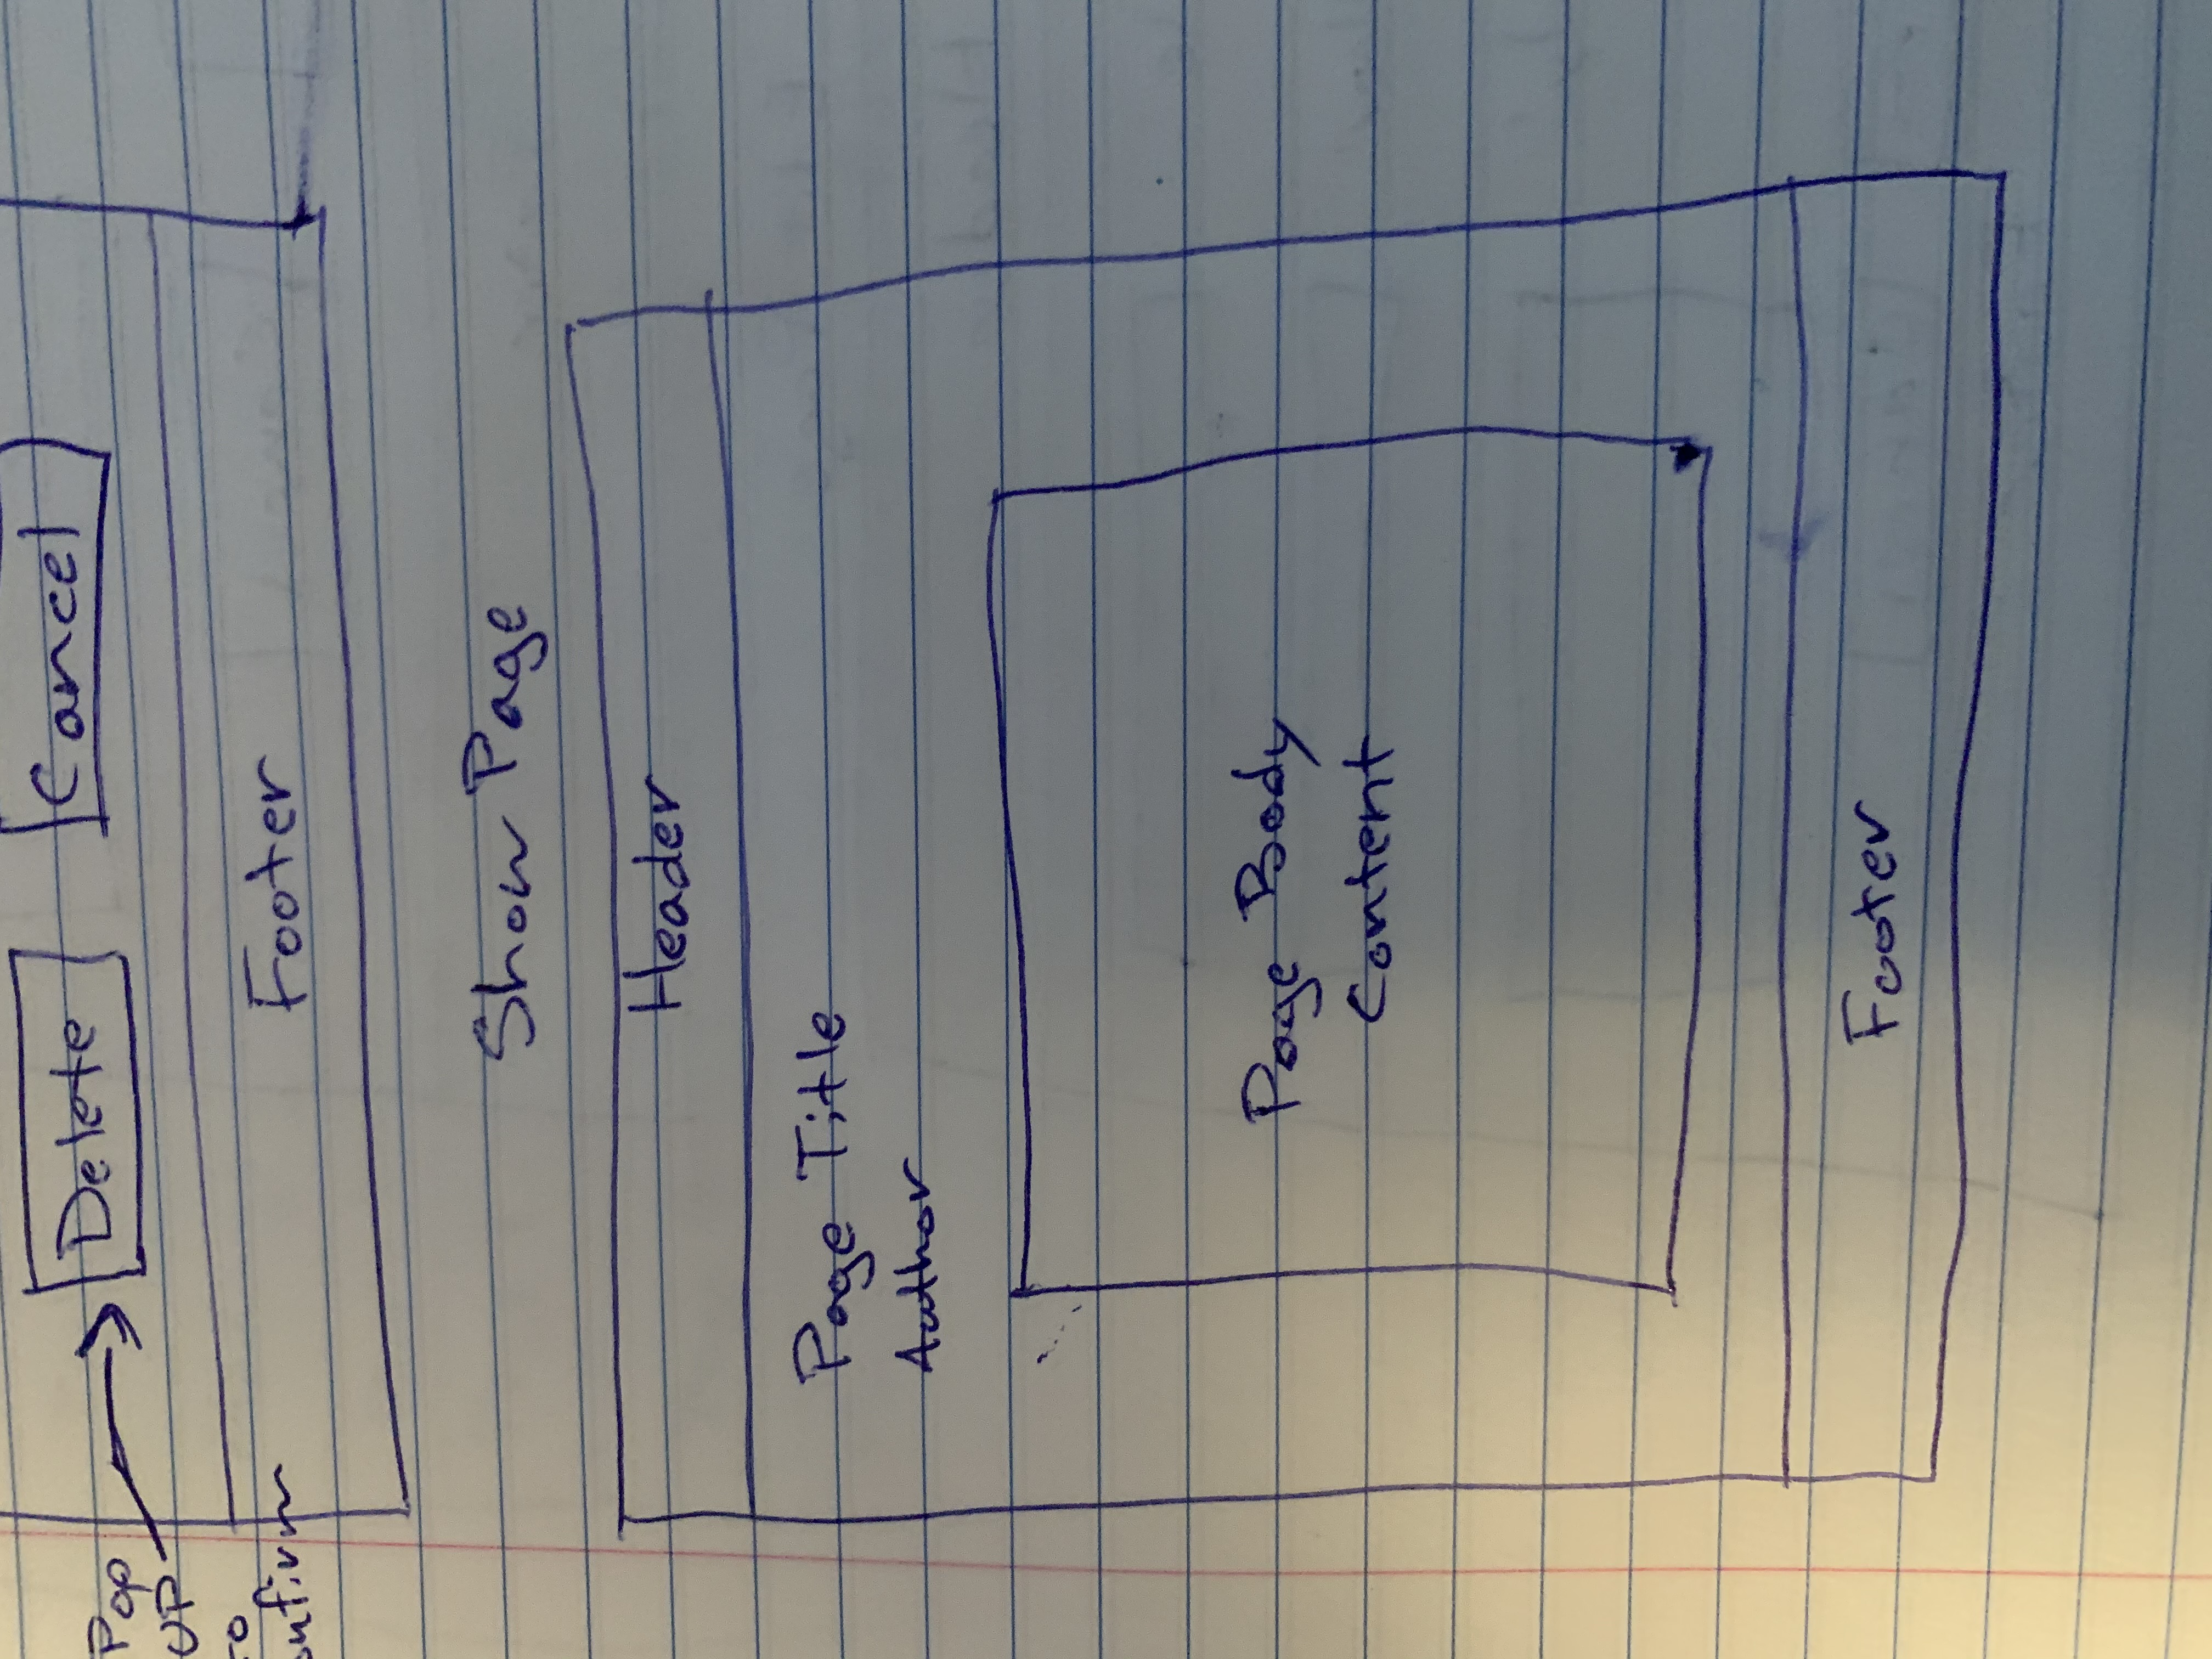 Delete
Cancel
Pop
UP
to
onfirm
Footer
Show Page
Header
Page Title
Author
Page Body
Content
Footer